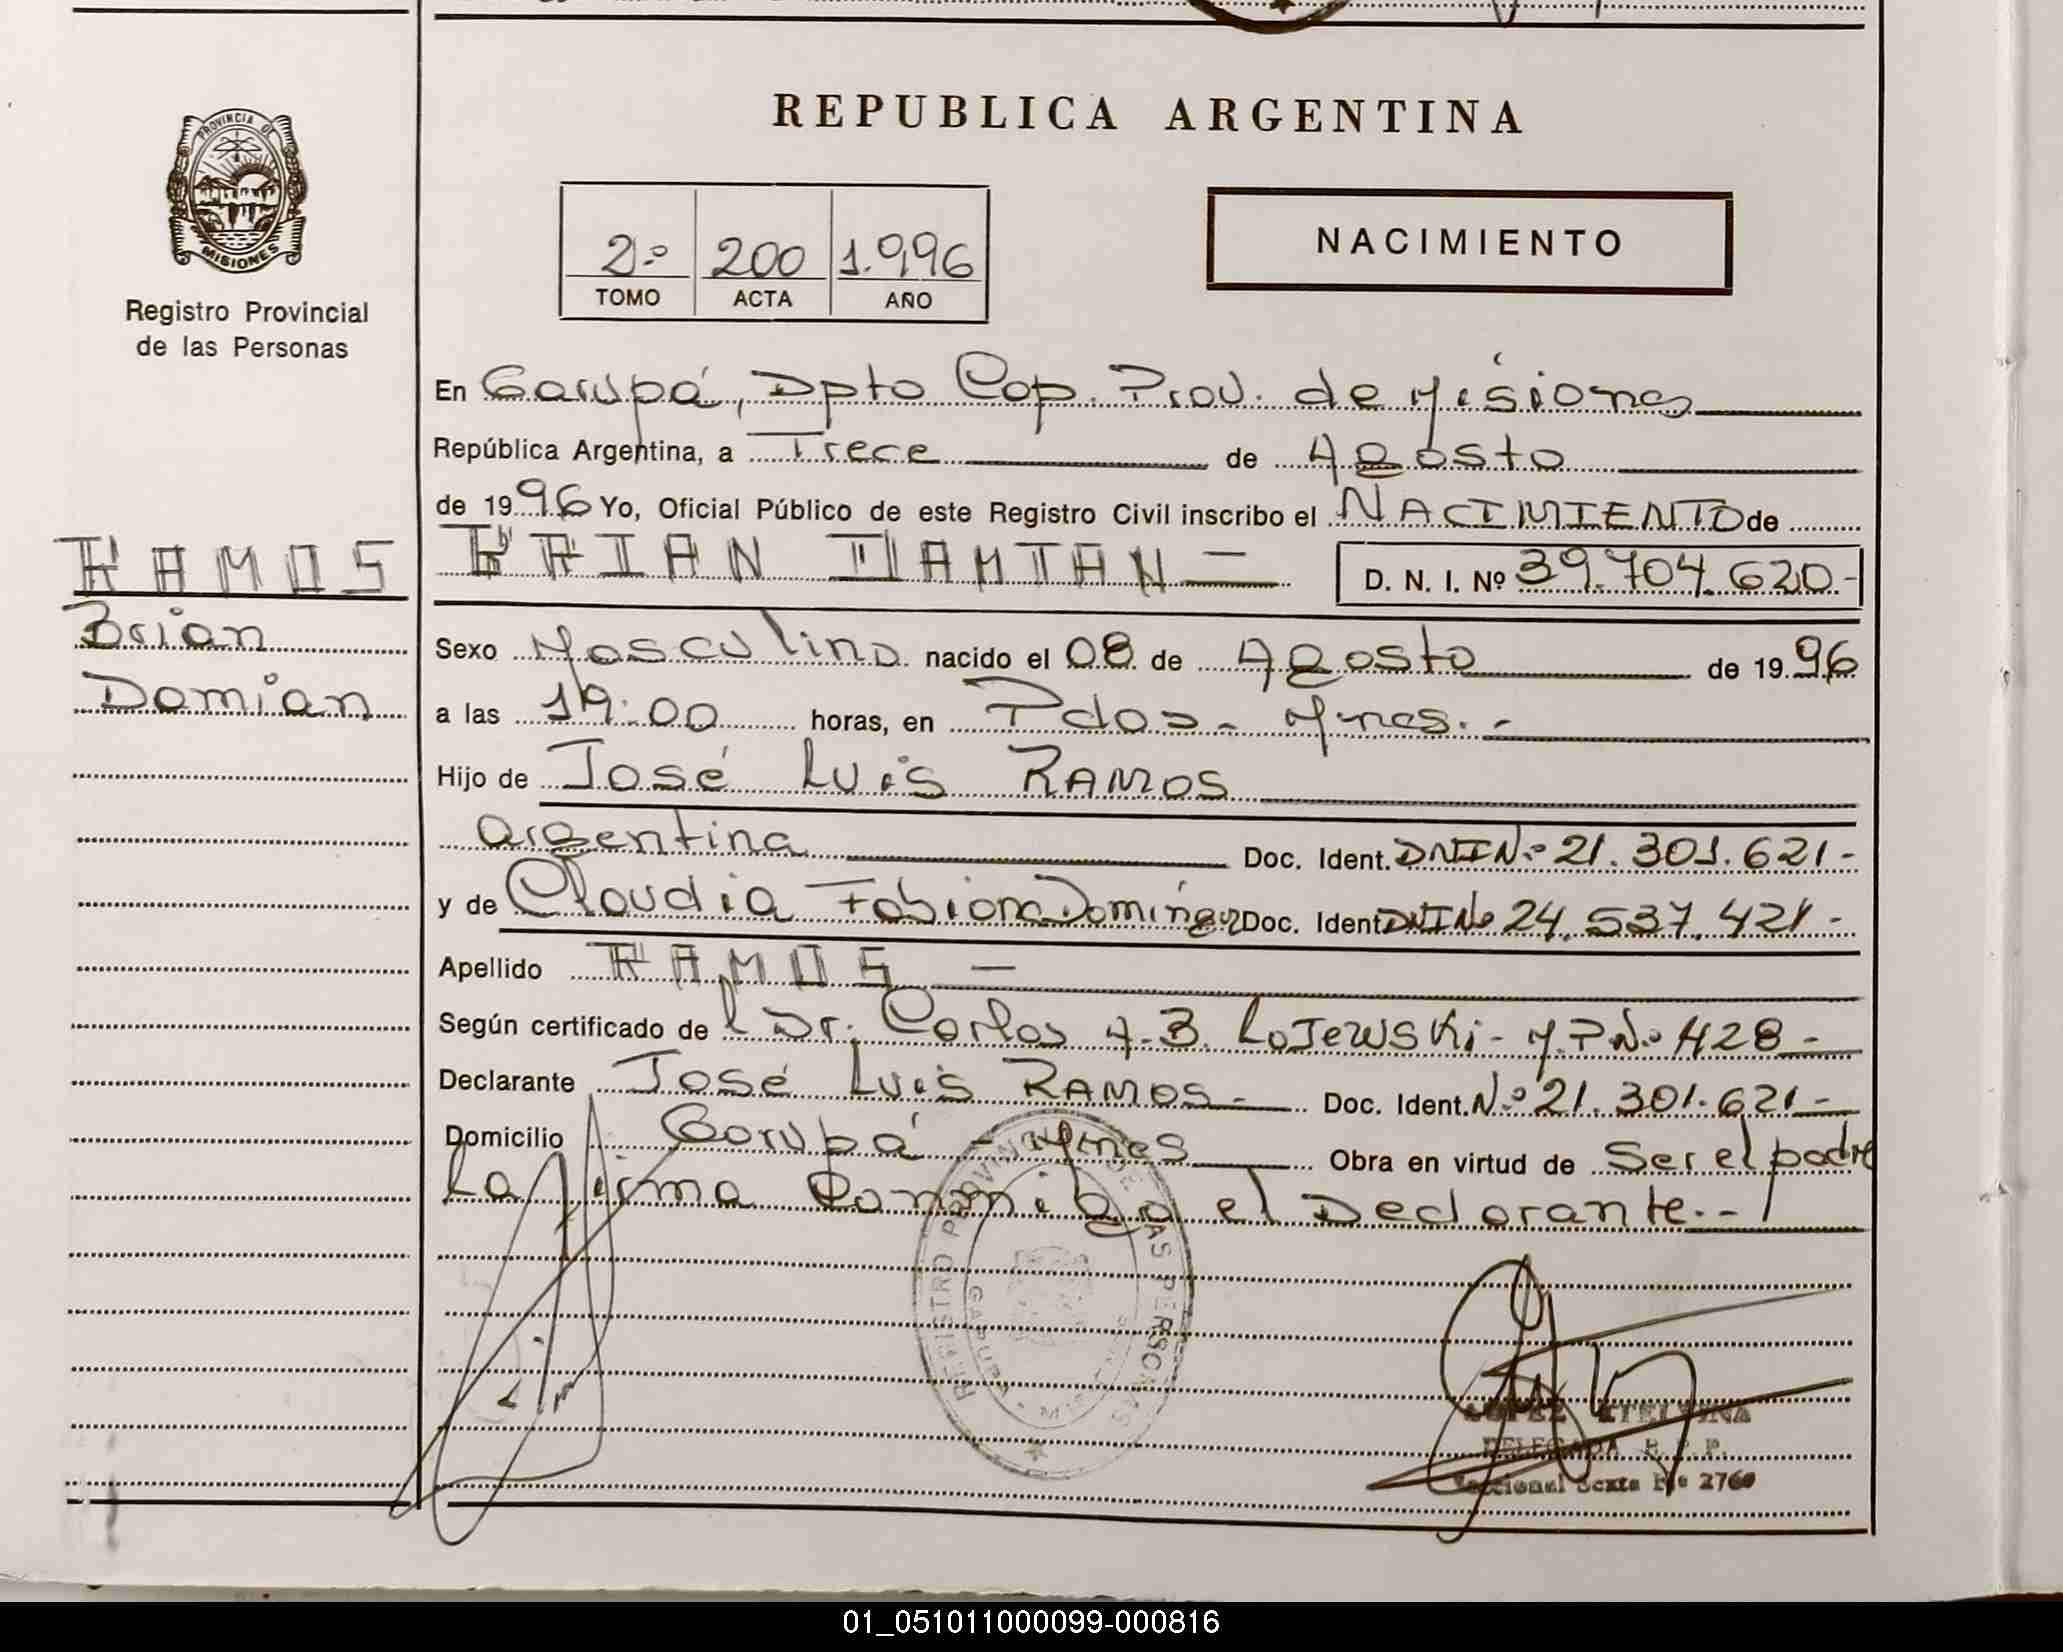 REPUBLICA ARGENTINA
PROVINCIA DE
MISIONES
Registro Provincial
de las Personas
2º 200 1.996
TOMO ACTA AÑO
NACIMIENTO
En Garupá, Dpto Cap. Prov. de Misiones
República Argentina, a Trece de Agosto
de 1996 Yo, Oficial Público de este Registro Civil inscribo el NACIMIENTO de
RAMOS
Brian
Damian
BRIAN DAMIAN - D. N. I. Nº 39.704.620-
Sexo Masculino nacido el 08 de Agosto de 1996
a las 19:00 horas, en Pdas - Mnes. -
Hijo de José Luis RAMOS
argentina Doc. Ident. DNI Nº 21.301.621-
y de Claudia Fabiana Domínguez Doc. Ident. DNI Nº 24.537.421-
Apellido RAMOS -
Según certificado de Dr. Carlos A. B. LoJewski - M.P Nº 428 -
Declarante José Luis RAMOS - Doc. Ident. Nº 21.301.621-
Domicilio Garupá - Mnes Obra en virtud de Ser el padre
La firma Conmigo el Declarante.-
REGISTRO PROVINCIAL DE LAS PERSONAS
GARUPA - MISIONES
LOPEZ ETELVINA
DELEGADA R.P.P.
Seccional Sexta Nº 2760
01_051011000099-000816